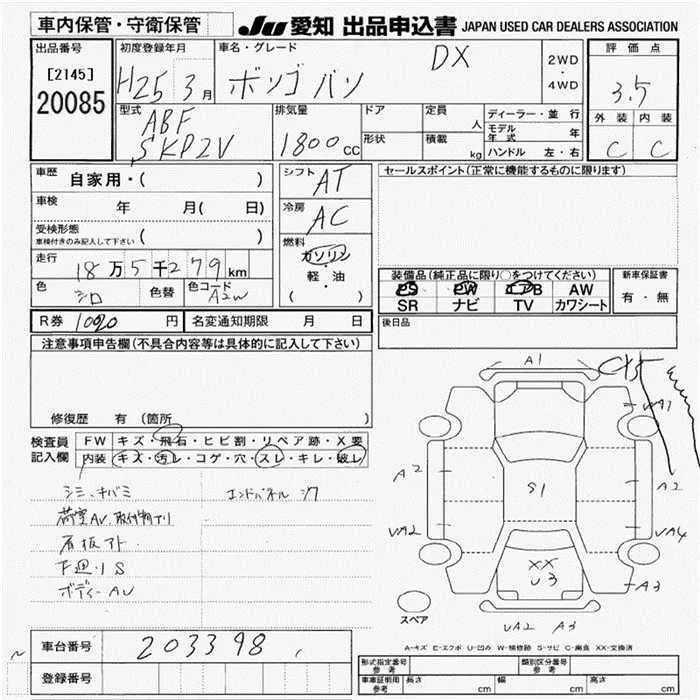 車内保管・守衛保管 JU 愛知 出品申込書 JAPAN USED CAR DEALERS ASSOCIATION
出品番号 初度登録年月 車名・グレード 評価点
[2145] H25 3月 ボンゴバン DX 2WD・4WD 3.5
20085 外装 内装
型式 排気量 ドア 定員 人 ディーラー・並行 C C
ABF 1800cc 形状 積載 kg モデル年式 年
SKP2V ハンドル 左・右
車歴 自家用・( ) シフト AT セールスポイント(正常に機能するものに限ります)
車検 年 月( 日) 冷房 AC
受検形態 車検付きのみ記入して下さい ( ) 燃料 ガソリン・軽・油 ( )
走行 18万5千279km 装備品(純正品に限り○をつけてください) 新車保証書
色 シロ 色替 色コード A2W PS PW エアB AW 有・無
SR ナビ TV カワシート
R券 10920円 名変通知期限 月 日 後日品
注意事項申告欄(不具合内容等は具体的に記入して下さい)
修復歴 有 (箇所 )
検査員記入欄 FW キズ・飛石・ヒビ割・リペア跡・X要
内装 キズ・汚レ・コゲ・穴・スレ・キレ・破レ
シミ、キバミ エンドパネル
荷室AU、取付跡アリ
看板アト
下廻りS
ボディーAU
A1
UA1
A2 S1 A2
UA2 UA4
XX
U3 A3
スペア UA2 A3
A-キズ E-エクボ U-凹み W-補修跡 S-サビ C-腐食 XX-交換済
車台番号 203398
登録番号
形式指定番号 参考 類別区分番号 参考
車庫証明用 参考 長さ cm 幅 cm 高さ cm